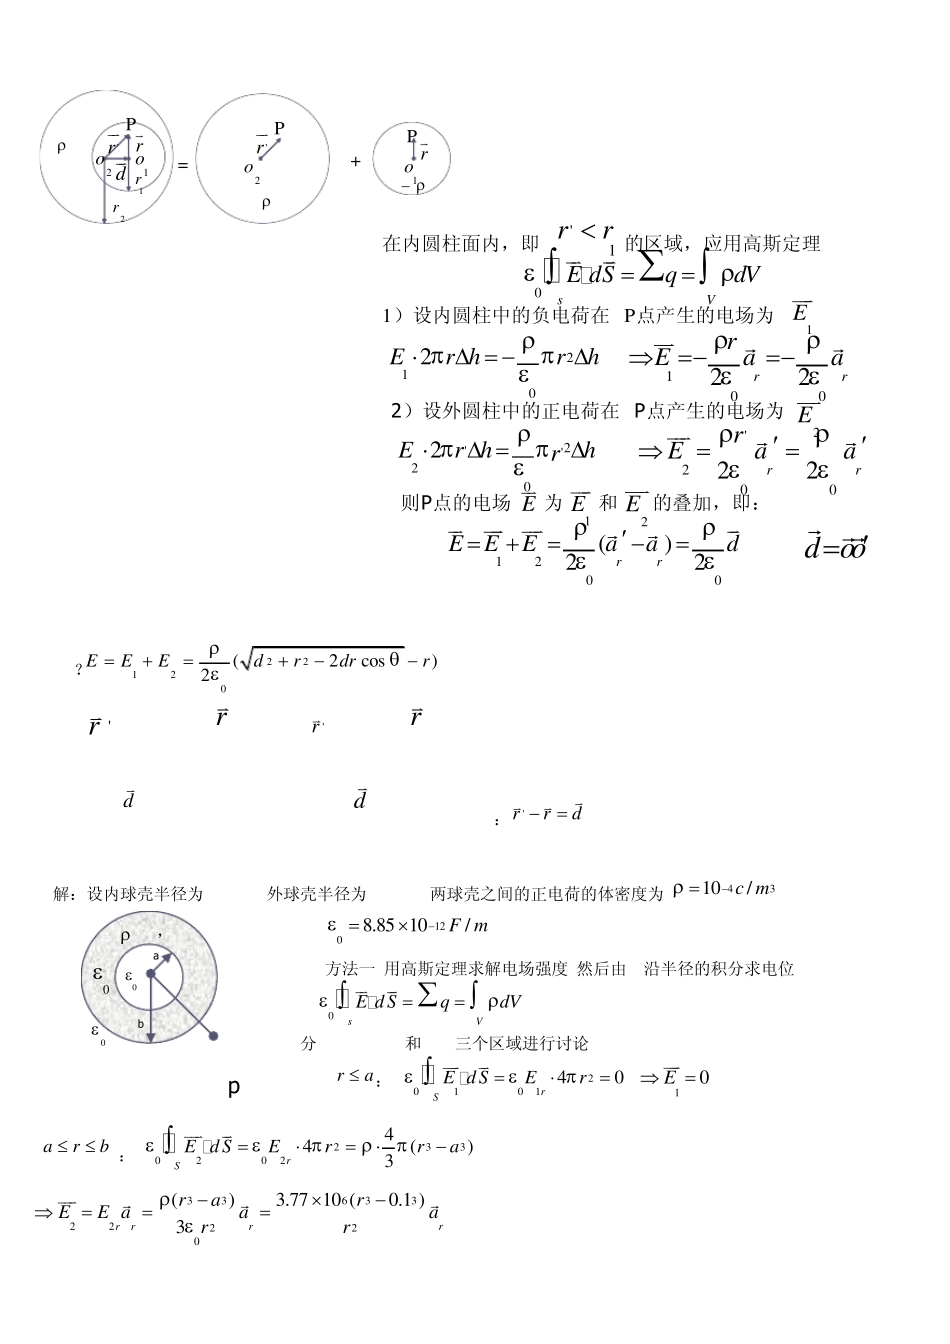 ρ P r' r o₂ d o₁ r₁ r₂ = P r' o₂ ρ + P r o₁ −ρ
在内圆柱面内，即 r' < r₁ 的区域，应用高斯定理
ε₀∮ₛ E·dS = ∑q = ∫_V ρdV
1）设内圆柱中的负电荷在 P点产生的电场为 E₁
E₁·2πrΔh = −ρ/ε₀ πr²Δh ⇒ E₁ = −ρr/2ε₀ a_r = −ρ/2ε₀ a_r
2）设外圆柱中的正电荷在 P点产生的电场为 E₂
E₂·2πr'Δh = ρ/ε₀ πr'²Δh ⇒ E₂ = ρr'/2ε₀ a_r′ = ρ/2ε₀ a_r′
则P点的电场 E 为 E₁ 和 E₂ 的叠加，即：
E = E₁ + E₂ = ρ/2ε₀ (a_r′ − a_r) = ρ/2ε₀ d d = oo′
? E = E₁ + E₂ = ρ/2ε₀ (√(d² + r² − 2dr cos θ) − r)
r' r r' r
d d
：r' − r = d
解：设内球壳半径为 外球壳半径为 两球壳之间的正电荷的体密度为 ρ = 10⁻⁴ c / m³
ρ , a ε₀ ε₀ b ε₀
ε₀ = 8.85 ×10⁻¹² F / m
方法一 用高斯定理求解电场强度 然后由 沿半径的积分求电位
ε₀∮ₛ E·dS = ∑q = ∫_V ρdV
分 和 三个区域进行讨论
p
r ≤ a： ε₀∮_S E₁·dS = ε₀E₁ᵣ·4πr² = 0 ⇒ E₁ = 0
a ≤ r ≤ b ： ε₀∮_S E₂·dS = ε₀E₂ᵣ·4πr² = ρ·4/3 π(r³ − a³)
⇒ E₂ = E₂ᵣ a_r = ρ(r³ − a³)/3ε₀r² a_r = 3.77 ×10⁶ (r³ − 0.1³)/r² a_r